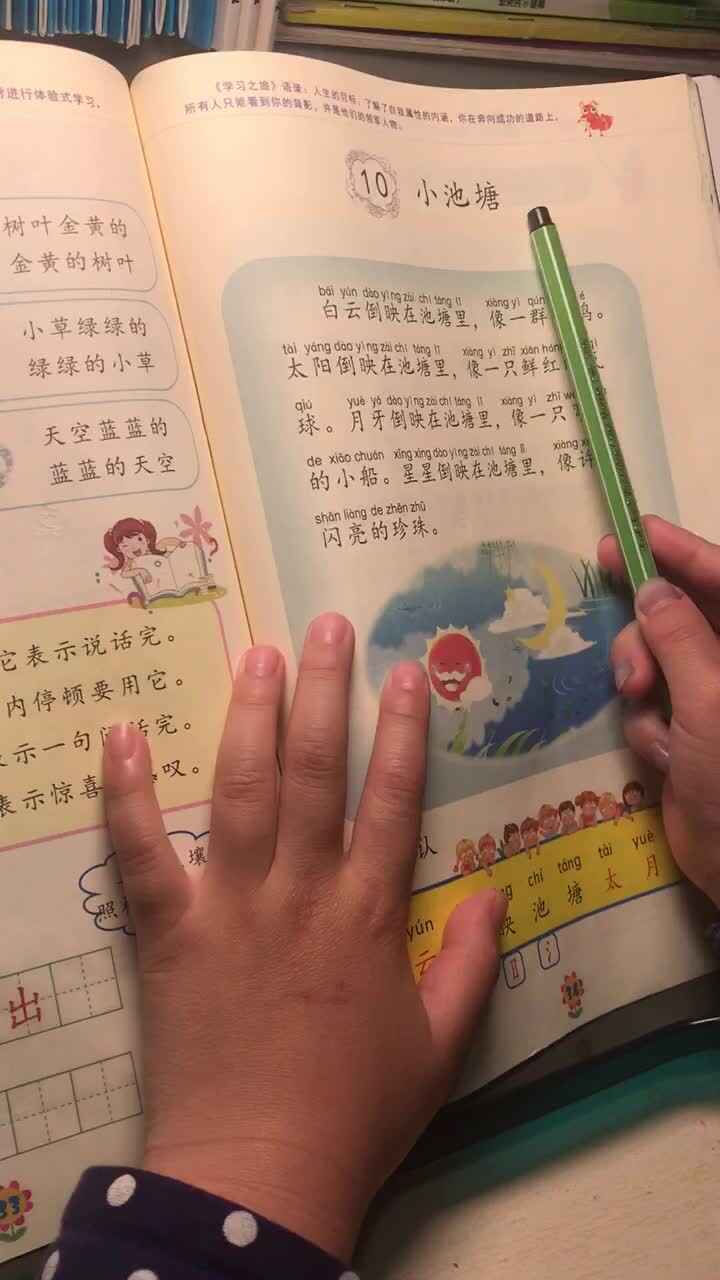 进行体验式学习。
树叶金黄的
金黄的树叶
小草绿绿的
绿绿的小草
天空蓝蓝的
蓝蓝的天空
它表示说话完。
内停顿要用它。
示一句 话完。
表示惊喜 叹。
照
出
33
《学习之旅》语录：人生的目标：了解了自我属性的内涵，你在奔向成功的道路上，
所有人只能看到你的背影，并是他们的领军人物。
10 小池塘
bái yún dào yìng zài chí táng lǐ xiàng yì qún
白云倒映在池塘里，像一群 鸟。
tài yáng dào yìng zài chí táng lǐ xiàng yì zhī xiān hóng
太阳倒映在池塘里，像一只鲜红
qiú yuè yá dào yìng zài chí táng lǐ xiàng yì zhī
球。月牙倒映在池塘里，像一只
de xiǎo chuán xīng xing dào yìng zài chí táng lǐ xiàng
的小船。星星倒映在池塘里，像许
shǎn liàng de zhēn zhū
闪亮的珍珠。
认
yún chí táng tài yuè
云 映 池 塘 太 月
阝 氵
34